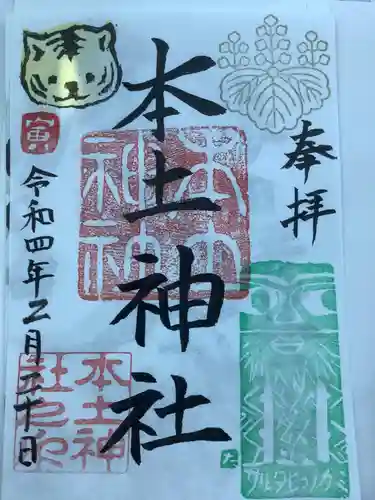 奉拝
本土神社
令和四年二月二十日
寅
本土神
社之印
サルタヒコノカミ
た